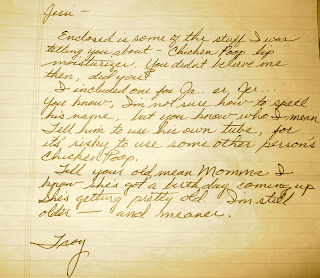 Jessi -
Enclosed is some of the stuff I was
telling you about - Chicken Poop lip
moisturizer. You didn't believe me
then, did you?
I included one for Ja.. er, Jer...
You know, I'm not sure how to spell
his name, but you know who I mean
Tell him to use his own tube, for
its risky to use some other person's
Chicken Poop.
Tell your old mean Momma I
know she's got a birthday coming up
She's getting pretty old. I'm still
older - and meaner.
Troy